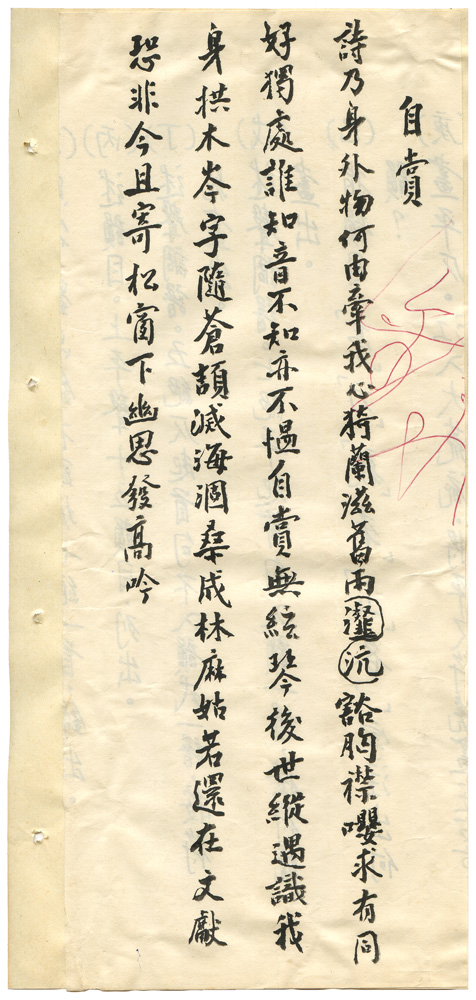 自賞
詩乃身外物何由牽我心猗蘭滋舊雨瀣沆豁胸襟嚶求有同
好獨處誰知音不知亦不愠自賞無絃琴後世縱遇識我
身拱木岑字隨蒼頡滅海涸桑成林麻姑若還在文獻
恐非今且寄松窗下幽思發高吟